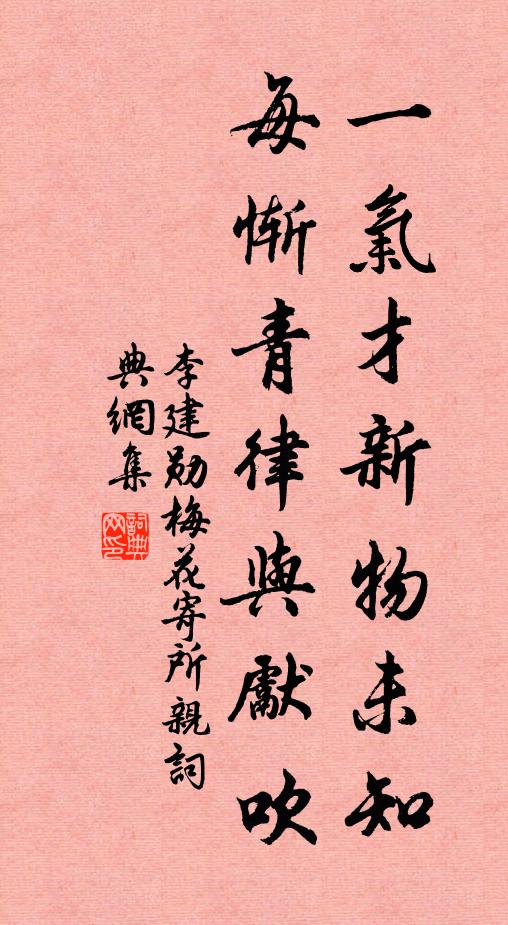 一氣才新物未知
每慚青律與獻吹
李建勛梅花寄所親詞
典網集
詞典網印